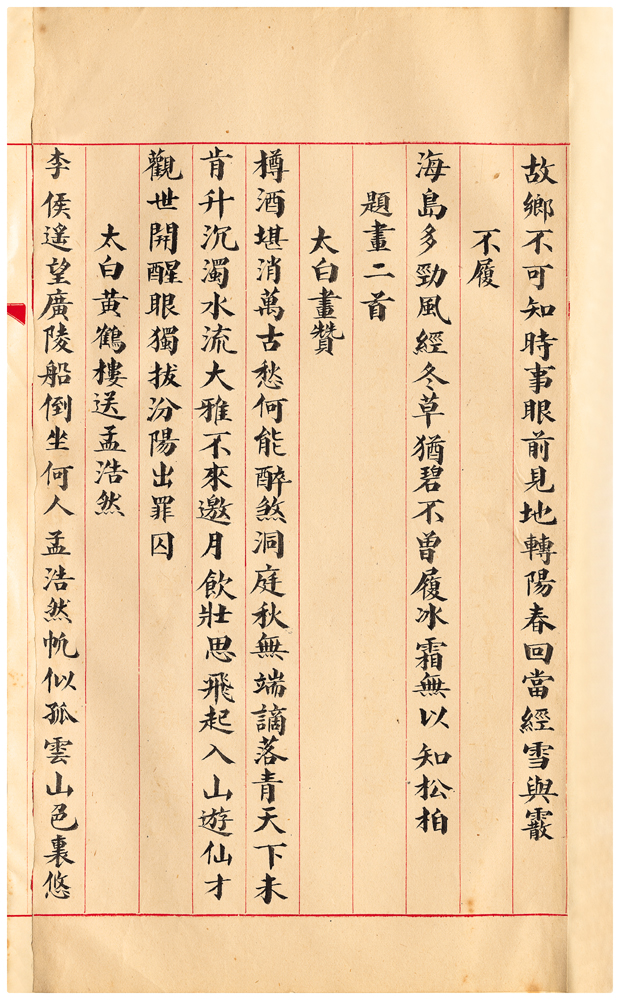 故鄉不可知時事眼前見地轉陽春回當經雪與霰
不履
海島多勁風經冬草猶碧不曾履冰霜無以知松柏
題畫二首
太白畫贊
樽酒堪消萬古愁何能醉煞洞庭秋無端謫落青天下未
肯升沉濁水流大雅不來邀月飲壯思飛起入山遊仙才
觀世開醒眼獨拔汾陽出罪囚
太白黃鶴樓送孟浩然
李侯遙望廣陵船倒坐何人孟浩然帆似孤雲山色裏悠